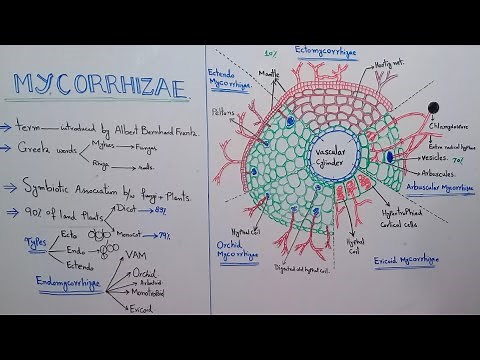 MYCORRHIZAE
→ term → introduced by Albert Bernhard Frank.
→ Greek words
Mykos → Fungus
Rhiza → roots.
→ Symbiotic Association b/w fungi + Plants.
→ 90% of land Plants
Dicot → 83%
Monocot → 79%
Types
Ecto
Endo
Ectendo
Endomycorrhizae
VAM
Orchid
Arbutoid
Monotropoid
Ericoid
10%
Ectomycorrhizae
Ectendo
Mycorrhizae
Mantle
Hartig net.
Peltons
Chlamydospore
Extra radical hyphae
vesicles. 70%
Arbuscules.
Arbuscular Mycorrhizae
Vascular
Cylinder
Hypertrophied
Cortical cells
Hyphal Coil
Orchid
Mycorrhizae
Digested old hyphal coil.
Hyphal
Coil
Ericoid Mycorrhizae